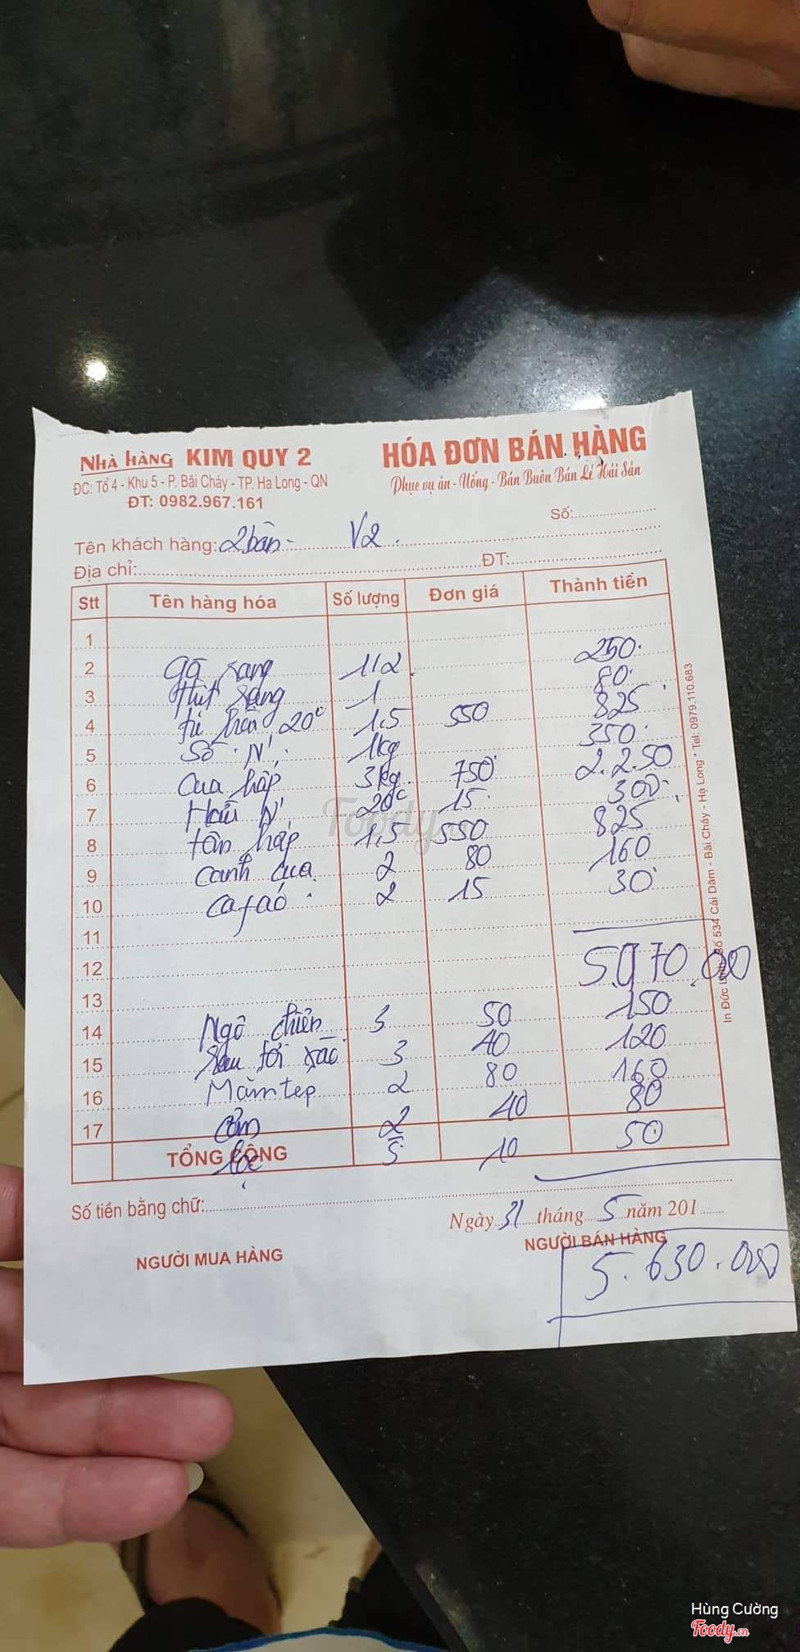 Nhà hàng KIM QUY 2
HÓA ĐƠN BÁN HÀNG
ĐC: Tổ 4 - Khu 5 - P. Bãi Cháy - TP. Hạ Long - QN
Phục vụ ăn - Uống - Bán Buôn Bán Lẻ Hải Sản
ĐT: 0982.967.161
Số:
Tên khách hàng: 2 bàn - V2.
Địa chỉ: ĐT:
Stt Tên hàng hóa Số lượng Đơn giá Thành tiền
1
2 gà rang 1/2 250
3 thịt rang 1 80
4 20c 1,5 550 825
5 1kg 350
6 Cua hấp 3kg 750 2.250
7 20c 15 300
8 hấp 1,5 550 825
9 canh cua 2 80 160
10 2 15 30
11
12 5.070.000
13
14 Ngô chiên 3 50 150
15 tỏi xào 3 40 120
16 Mắm tép 2 80 160
17 Cơm 2 40 80
TỔNG CỘNG
5 10 50
Số tiền bằng chữ:
Ngày 31 tháng 5 năm 201
NGƯỜI MUA HÀNG
NGƯỜI BÁN HÀNG
5.630.000
534 Cái Dăm - Bãi Cháy - Hạ Long * Tel: 0979.110.683
Foody
Hùng Cường
Foody.vn